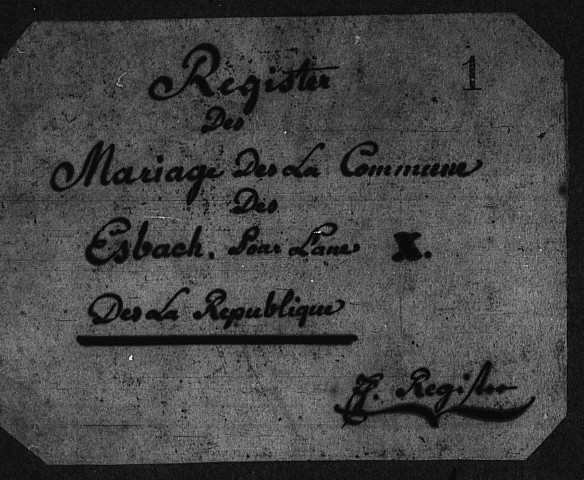 Register 1
Des
Mariage Des La Commune
Des
Esbach. Pour L'ane X.
Des La Republique
Register